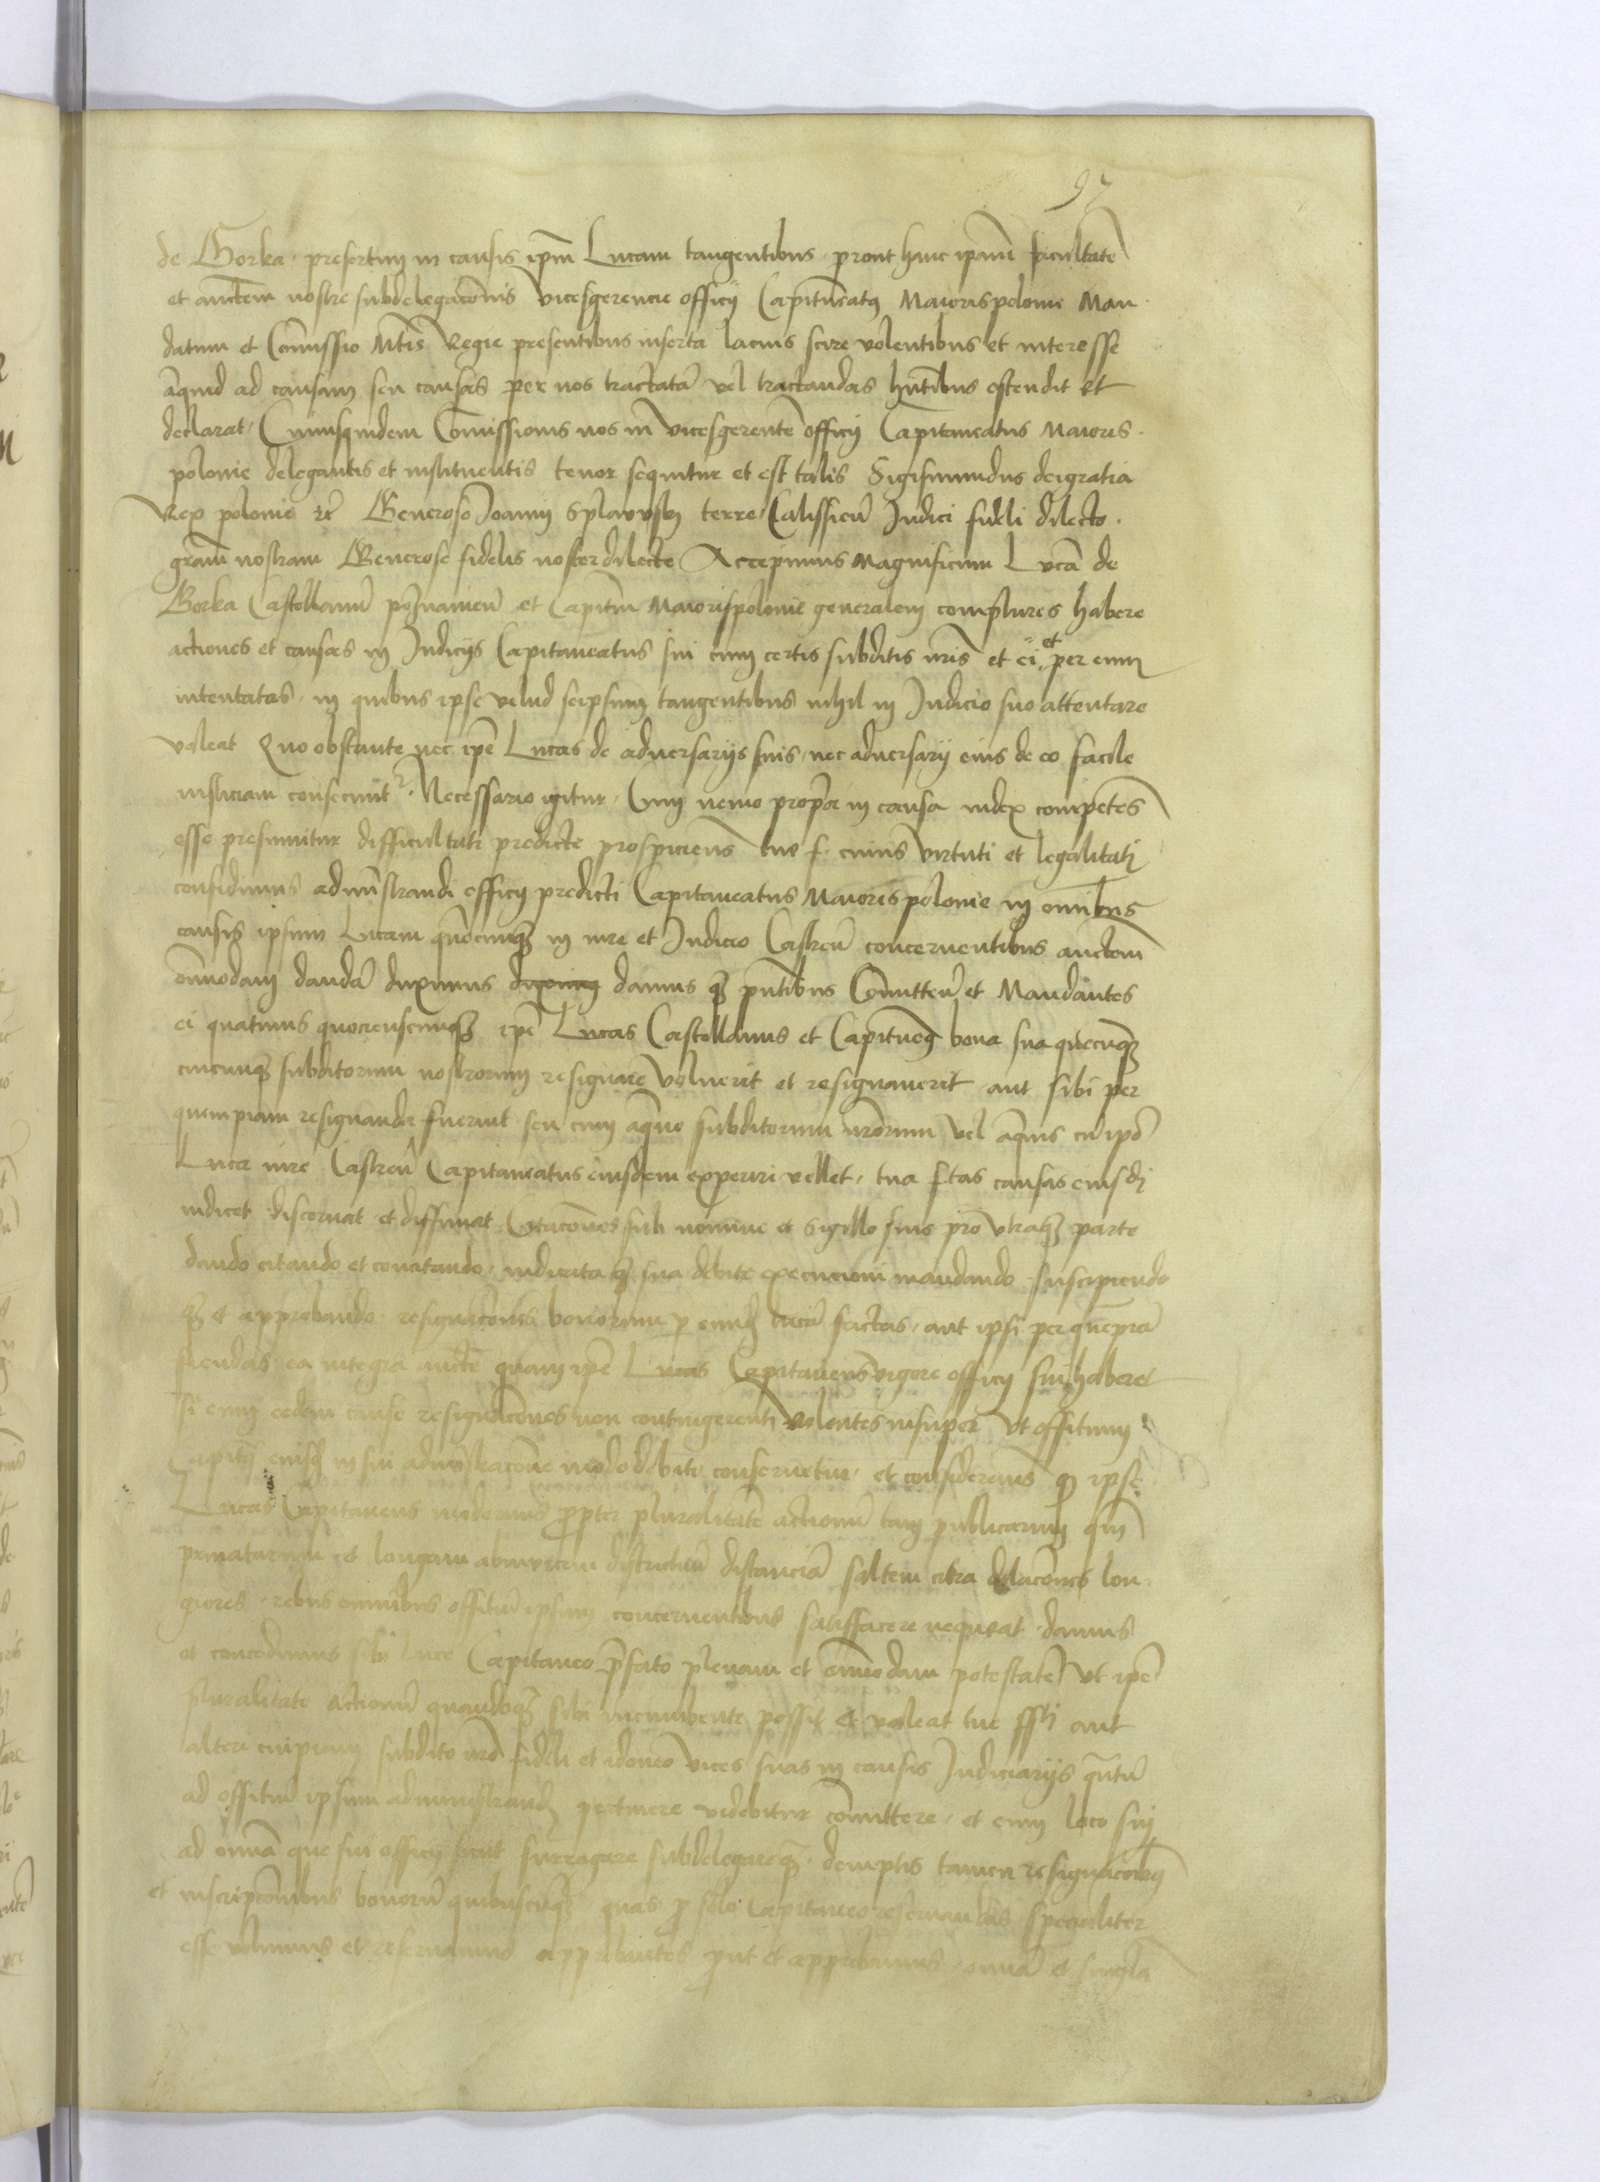 97
de Gorka presertim in causis ipm̄ Lucam tangentibus pront huic ipam̄ facultatē
et auctem̄ nostre subdelegacōnis vicesgerencie officij Capitaneatus Maiorispolonie Man
datum et Comissio Mtis Regie presentibus inserta lacius scire volentibus et interesse
aliquid ad causam seu causas per nos tractatas vel tractandas hn̄tibus ostendit et
declarat Cuiusquidem Comissionis nos in vicesgerentē officij Capitaneatus Maioris
polonie delegantis et instituentis tenor sequitur et est talis Sigismundus deigratia
Rex polonie Generoso Joanni Splawsky terre Calissien̄ Judici fideli dilecto
gram̄ nostram Generose fidelis noster dilecte Accepimus Magnificum Lucā de
Gorka Castellanū poznanien̄ et Capitm̄ Maiorispolonie generalem complures habere
actiones et causas in Judicijs Capitaneatus sui cum certis subditis nr̄is et ei et per eum
intentatas in quibus ipse velud seipsum tangentibus nihil in Judicio suo attentare
valeat Quo obstante nec ipē Lucas de adversarijs suis nec adversarij eius de eo facile
iusticiam consecunt Necessario igitur Cum nemo propria in causa iudex competēs
esse presumitur difficultati predicte prospiciens tue f cuius virtuti et legalitati
confidimus administrandi officij predicti Capitaneatus Maioris polonie in omnibus
causis ipsum Lucam quōcunq̄ in iure et Judicio Castren̄ concernentibus auctem̄
om̄imodam dandā duximus duximus damus q̄ pn̄tibus Comitten̄ et Mandantes
ei quatinus quocienscunq̄ ipē Lucas Castellanus et Capitneus bona sua quecunq̄
cuicunq̄ subditorum nostrorum resignare voluerit et resignaverit aut sibi per
quempiam resignanda fuerint seu cum aliquo subditorum nr̄orum vel aliquis cū ipō
Luca iure Castren̄ Capitaneatus eiusdem experiri vellet tua f̄tas causas eiusdi
iudicet discernat et diffiniat Citacōnes sub nomine et Sigillo suis pro utraq̄ parte
dando citando et concitando iudicata q̄ sua debite execucioni mandando suscipiendo
q̄ et approbando resignacōnes bonorum p eund Lucā factas aut ipsi per quēpiā
fiendas ea integra aucte quam ipē Lucas Capitaneus vigore officij sui haberet
si cum eedem cause resignacōnes non contingerent volentes insuper ut officium
Capit eiusd in sui administracōne modo debito conservetur et considerans q̄ ipse
Lucas Capitaneus modernus propter pluralitatē actionū tam publicarum qm̄
privatarum et longam abinvicem districtuū distanciā saltem citra dilacōnes lon
giores rebus omnibus officiū ipsum concernentibus satisfacere nequeat damus
et concedimus sibi Luce Capitaneo p̄fato plenam et om̄imodam potestatē ut ipē
pluralitate actionū quandoq̄ sibi incumbente possit et valeat tue ff̄ti aut
alteri cuipiam subdito nr̄o fideli et idoneo vices suas in causis Judiciarijs quātū
ad officiū ipsum administrand pertinere videbitur com̄ittere et eum loco sui
ad om̄ia que sui officij sunt surrogare subdelegareq̄ demptis tamen resignacōibus
et inscripcōnibus bonorū quibuscunq̄ quas p̄ solo Capitaneo reservandas specialiter
esse volumus et reservamus approbantes put et approbamus om̄ia et singla